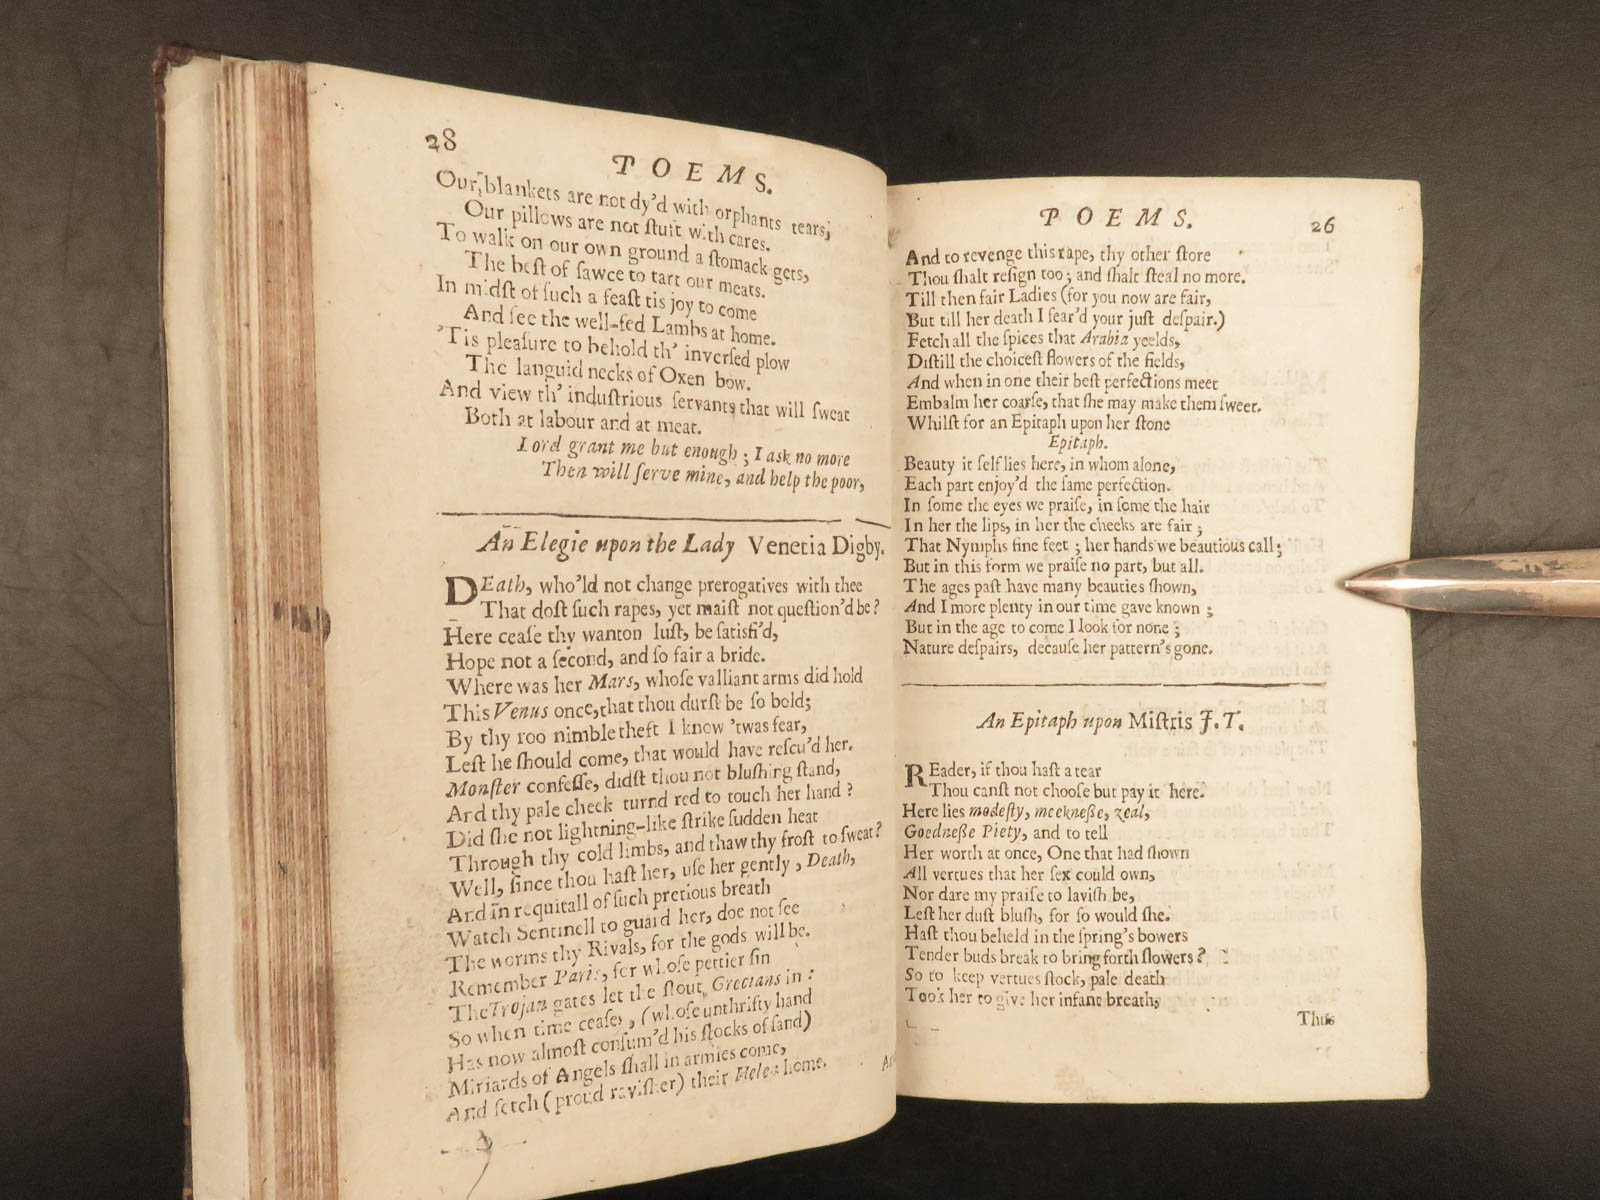 28
POEMS.
Our blankets are not dy'd with orphants tears;
Our pillows are not stuft with cares.
To walk on our own ground a stomack gets,
The best of sawce to tart our meats.
In midst of such a feast tis joy to come
And see the well-fed Lambs at home.
'Tis pleasure to behold th' inversed plow
The languid necks of Oxen bow.
And view th' industrious servants that will sweat
Both at labour and at meat.
Lord grant me but enough; I ask no more
Then will serve mine, and help the poor,
An Elegie upon the Lady Venetia Digby.
DEath, who'ld not change prerogatives with thee
That dost such rapes, yet maist not question'd be?
Here cease thy wanton lust, be satisfi'd,
Hope not a second, and so fair a bride.
Where was her Mars, whose valliant arms did hold
This Venus once, that thou durst be so bold;
By thy too nimble theft I know 'twas fear,
Lest he should come, that would have rescu'd her.
Monster confesse, didst thou not blushing stand,
And thy pale cheek turnd red to touch her hand?
Did she not lightning-like strike sudden heat
Through thy cold limbs, and thaw thy frost to sweat?
Well, since thou hast her, use her gently, Death,
And in requitall of such pretious breath
Watch Sentinell to guard her, doe not see
The worms thy Rivals, for the gods will be.
Remember Paris, for whose pettier sin
The Trojan gates let the stout Grecians in:
So when time ceases, (whose unthrifty hand
Has now almost consum'd his stocks of sand)
Miriards of Angels shall in armies come,
And fetch (proud ravisher) their Helen home.
And
POEMS.
26
And to revenge this rape, thy other store
Thou shalt resign too; and shalt steal no more.
Till then fair Ladies (for you now are fair,
But till her death I fear'd your just despair.)
Fetch all the spices that Arabia yeelds,
Distill the choicest flowers of the fields,
And when in one their best perfections meet
Embalm her coarse, that she may make them sweet.
Whilst for an Epitaph upon her stone
Epitaph.
Beauty it self lies here, in whom alone,
Each part enjoy'd the same perfection.
In some the eyes we praise, in some the hair
In her the lips, in her the cheeks are fair;
That Nymphs fine feet; her hands we beautious call;
But in this form we praise no part, but all.
The ages past have many beauties shown,
And I more plenty in our time gave known;
But in the age to come I look for none;
Nature despairs, because her pattern's gone.
An Epitaph upon Mistris J.T.
REader, if thou hast a tear
Thou canst not choose but pay it here.
Here lies modesty, meekneße, zeal,
Goodneße Piety, and to tell
Her worth at once, One that had shown
All vertues that her sex could own,
Nor dare my praise to lavish be,
Lest her dust blush, for so would she.
Hast thou beheld in the spring's bowers
Tender buds break to bring forth flowers?
So to keep vertues stock, pale death
Took her to give her infant breath,
Thus